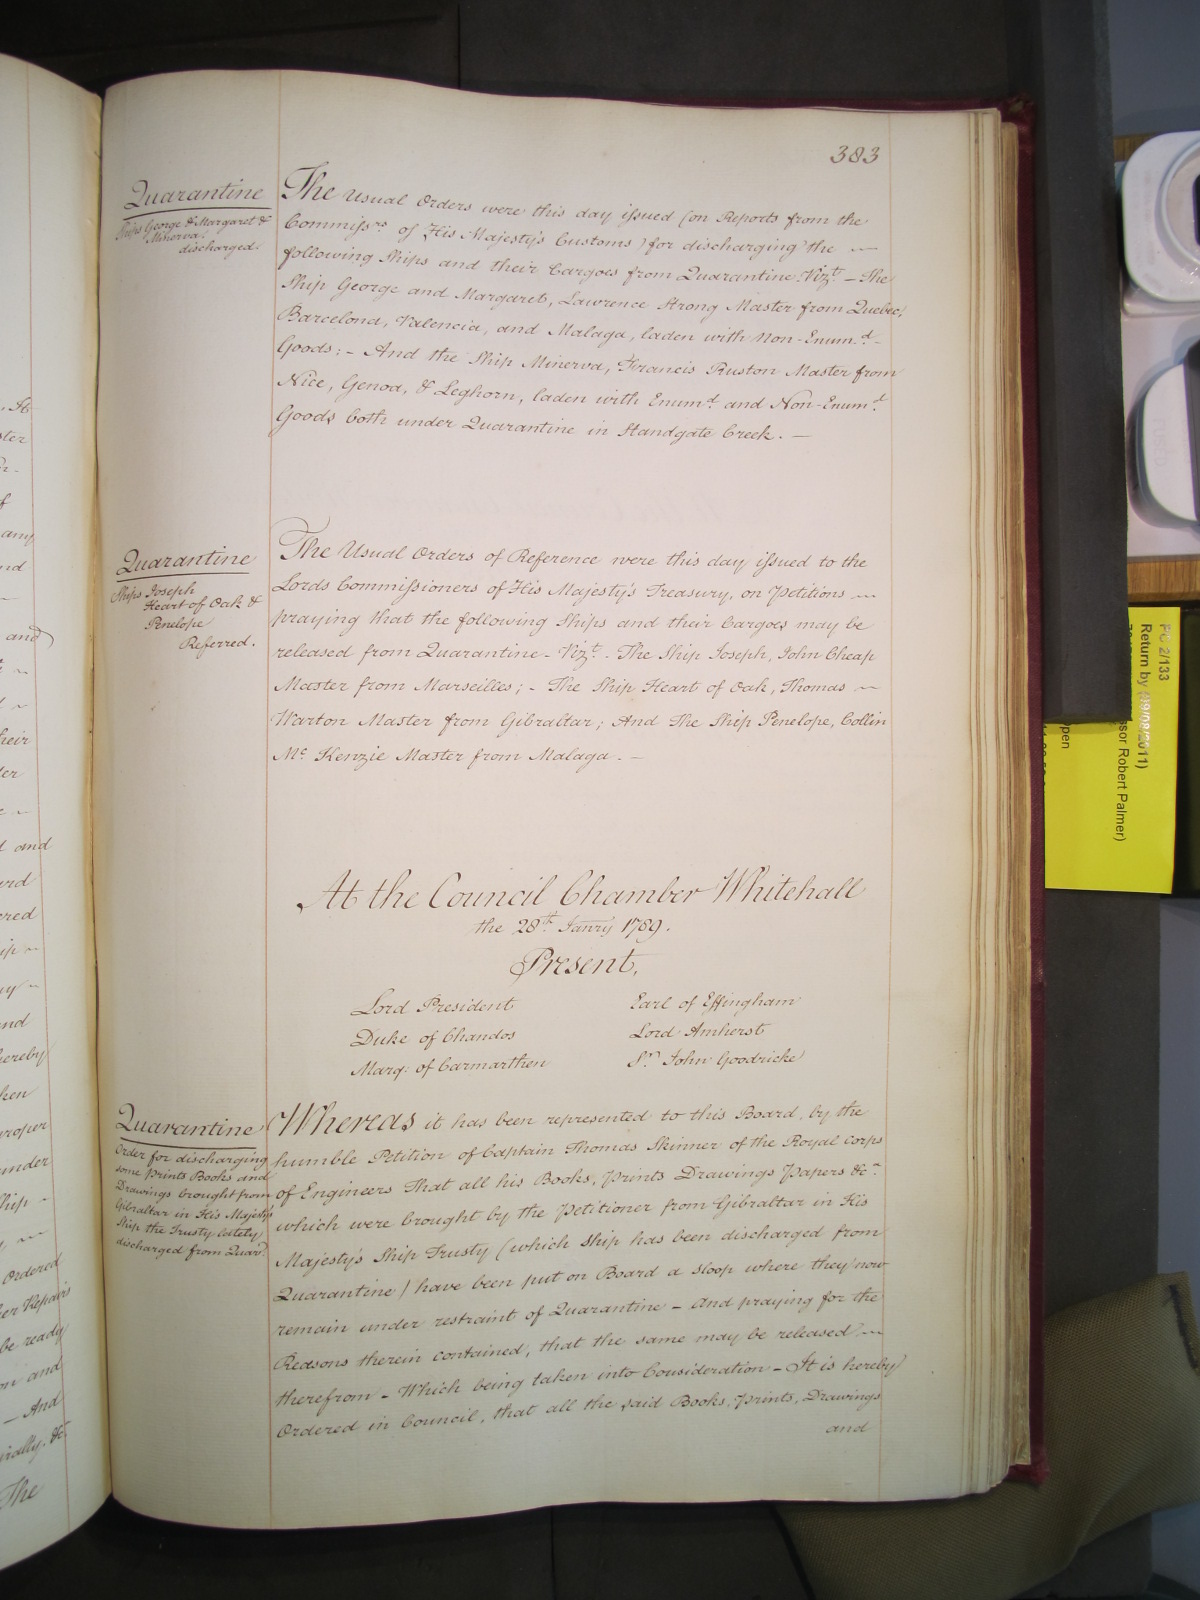 383
Quarantine
Ships George & Margaret &
Minerva.
discharged.
The Usual Orders were this day issued (on Reports from the
Commissrs of His Majesty's Customs) for discharging the
following Ships and their Cargoes from Quarantine Vizt. - The
Ship George and Margaret, Lawrence Strong Master from Quebec,
Barcelona, Valencia, and Malaga, laden with Non-Enumd.
Goods; - And the Ship Minerva, Francis Ruston Master from
Nice, Genoa, & Leghorn, laden with Enumd. and Non-Enumd.
Goods both under Quarantine in Standgate Creek. -
Quarantine
Ships Joseph
Heart of Oak &
Penelope
Referred.
The Usual Orders of Reference were this day issued to the
Lords Commissioners of His Majesty's Treasury, on Petitions
praying that the following Ships and their Cargoes may be
released from Quarantine - Vizt. - The Ship Joseph, John Cheap
Master from Marseilles; - The Ship Heart of Oak, Thomas
Warton Master from Gibraltar; And The Ship Penelope, Collin
Mc Kenzie Master from Malaga. -
At the Council Chamber Whitehall
the 28th Janry 1789.
Present,
Lord President
Duke of Chandos
Marq: of Carmarthen
Earl of Effingham
Lord Amherst
Sr. John Goodricke
Quarantine
Order for discharging
some Prints Books and
Drawings brought from
Gibraltar in His Majesty's
Ship the Trusty lately
discharged from Quar:
Whereas it has been represented to this Board, by the
humble Petition of Captain Thomas Skinner of the Royal Corps
of Engineers That all his Books, Prints Drawings Papers &ca.
which were brought by the Petitioner from Gibraltar in His
Majesty's Ship Trusty (which Ship has been discharged from
Quarantine) have been put on Board a Sloop where they now
remain under restraint of Quarantine - And praying for the
Reasons therein contained, that the same may be released
therefrom - Which being taken into Consideration - It is hereby
Ordered in Council, that all the said Books, Prints, Drawings
and
PC 2/133
Return by (19/08/2011)
ssor Robert Palmer)
open